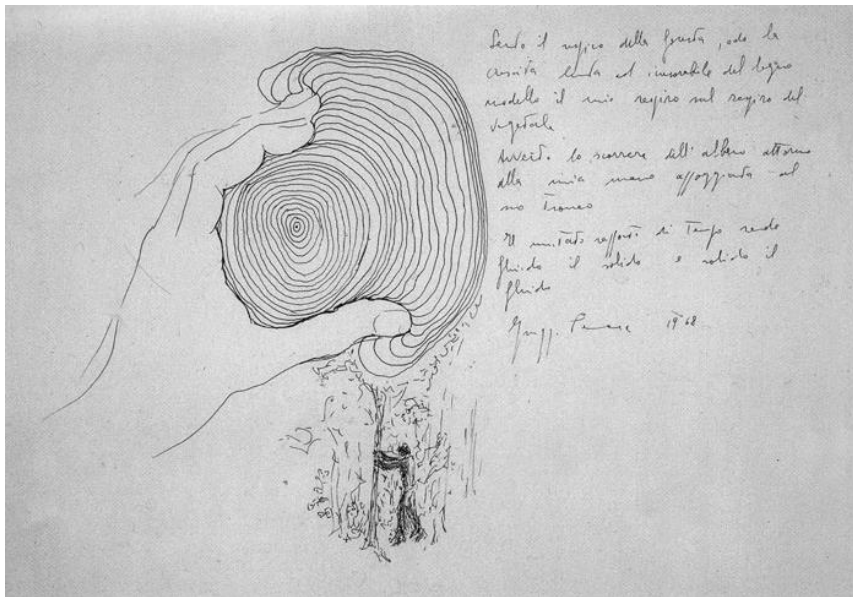 Sento il respiro della foresta, odo la
crescita lenta ed inesorabile del legno
modello il mio respiro sul respiro del
vegetale
Avverto lo scorrere dell'albero attorno
alla mia mano appoggiata al
suo tronco
Il mutato rapporto di tempo rende
fluido il solido e solido il
fluido
Penone 1968